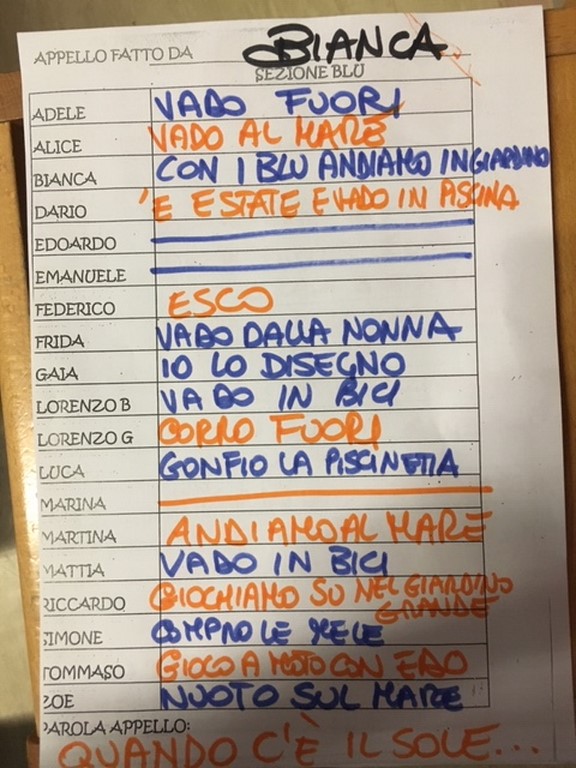 APPELLO FATTO DA BIANCA
SEZIONE BLU
ADELE VADO FUORI
ALICE VADO AL MARE
BIANCA CON I BLU ANDIAMO IN GIARDINO
DARIO 'E ESTATE E VADO IN PISCINA
EDOARDO
EMANUELE
FEDERICO ESCO
FRIDA VADO DALLA NONNA
GAIA IO LO DISEGNO
LORENZO B VADO IN BICI
LORENZO G CORRO FUORI
LUCA GONFIO LA PISCINETTA
MARINA
MARTINA ANDIAMO AL MARE
MATTIA VADO IN BICI
RICCARDO GIOCHIAMO SU NEL GIARDINO
GRANDE
SIMONE COMPRO LE MELE
TOMMASO GIOCO A MOTO CON EDO
ZOE NUOTO SUL MARE
PAROLA APPELLO:
QUANDO C'È IL SOLE...